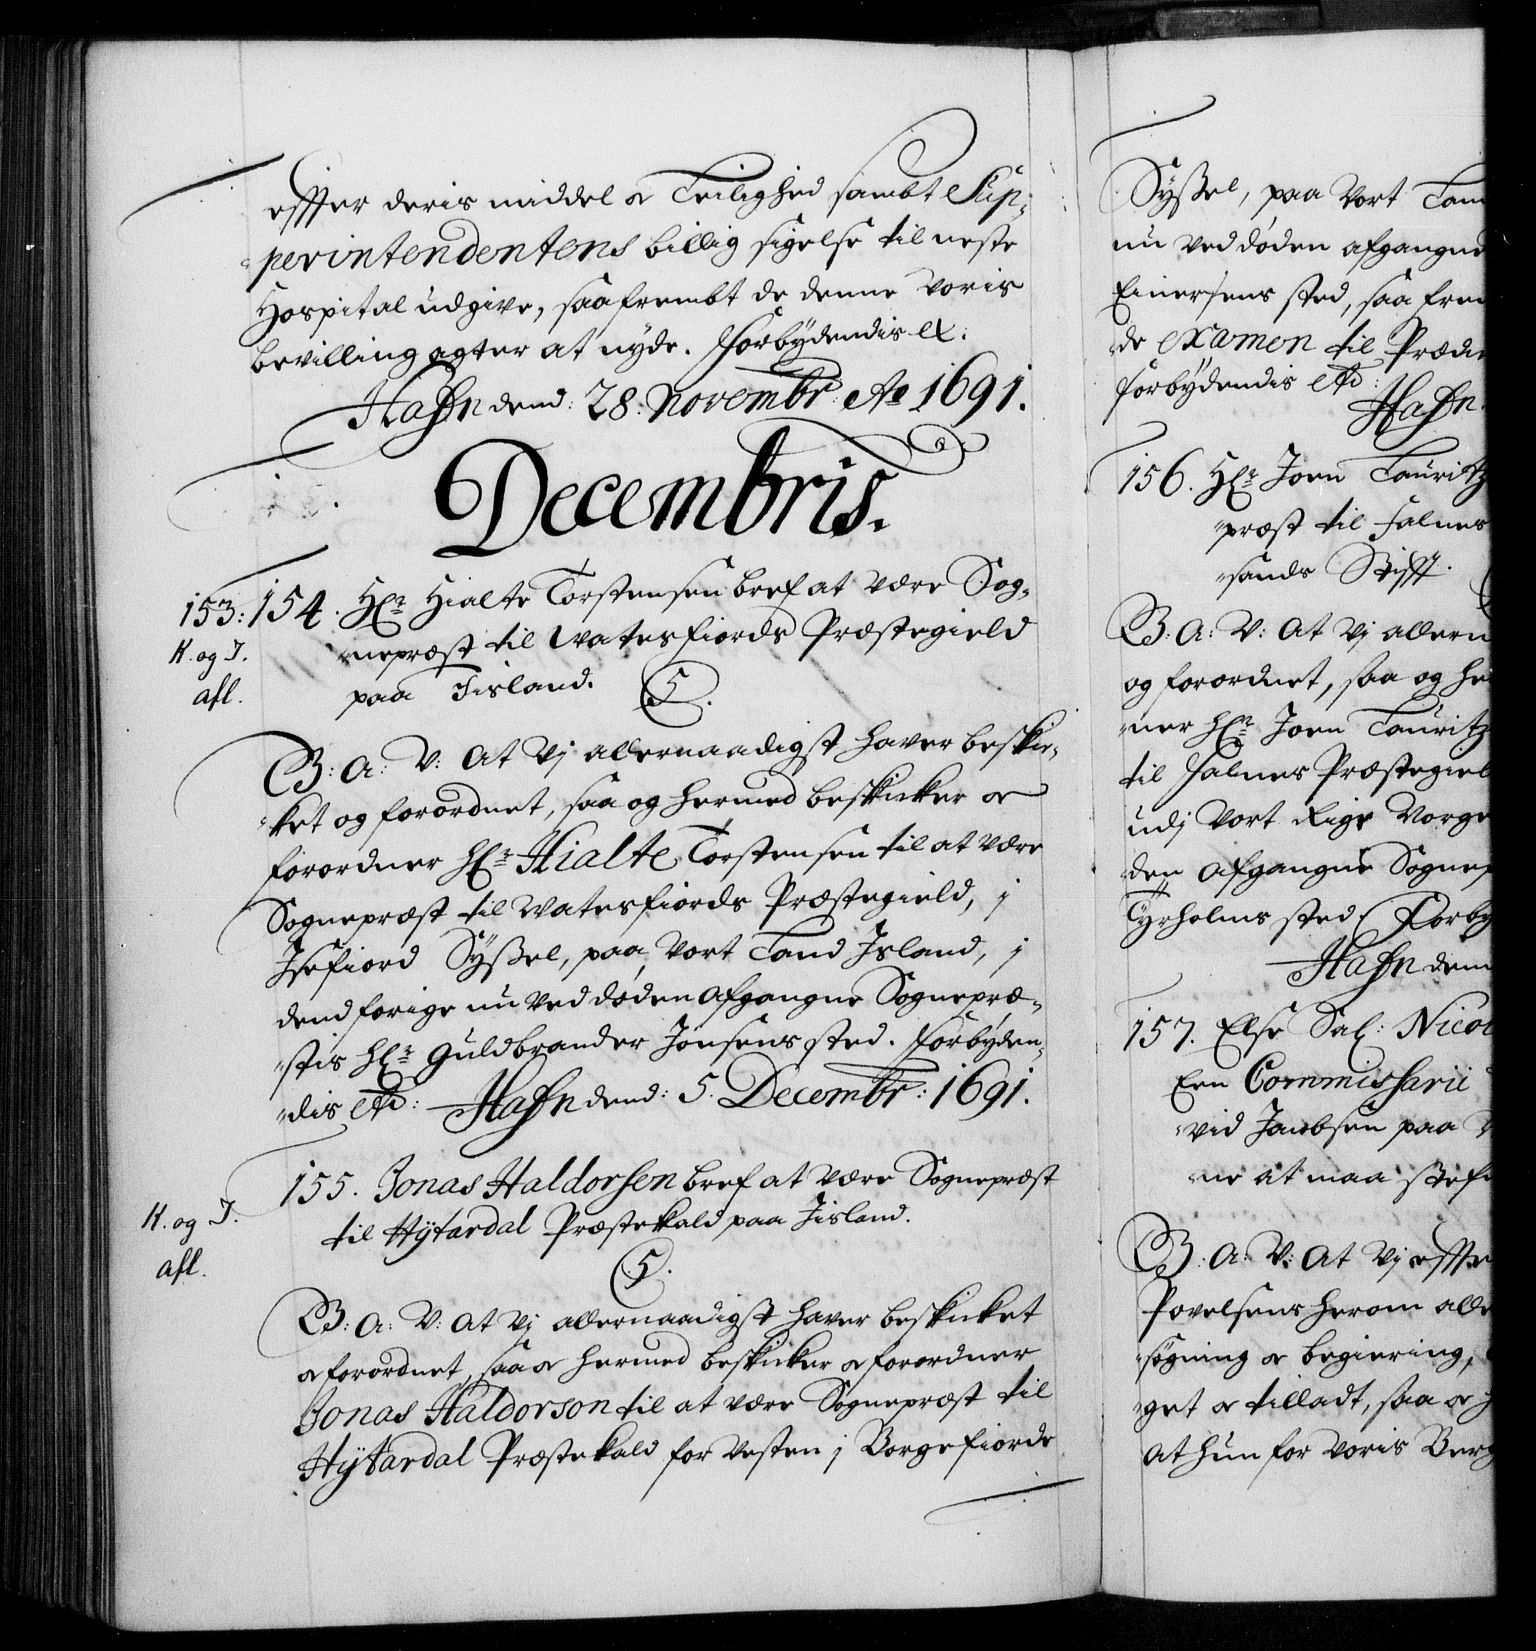 effter deris middel og Leilighed sambt Sup-
perintendentens billig sigelse til neste
Hospital udgive, saafrembt de denne Voris
bevilling agter at nyde. Forbydendis etc:
Hafn dend: 28: Novembr: Ao 1691.
Decembris.
153: 154. Hr: Hialte Torstensen bref at være Sog-
nepræst til Watesfiords Præstegield
paa Iisland. 5.
K. og I.
afl.
G: A: V: At Vj allernaadigst hafver beskic-
ket og forordnet, saa og hermed beskicker og
forordner Hr: Hialte Torstensen til at være
Sognepræst til Watesfiords Præstegield, i
Isefiord Syssel, paa Vort Land Island, i
dend forige nu ved døden afgangne Sognepræ-
stis Hr: Guldbrander Jonsens sted. Forbyden-
dis etc: Hafn dend: 5. Decembr: 1691.
155. Jonas Haldorsen bref at være Sognepræst
til Hÿtardal Præstekald paa Iisland.
5.
K. og I.
afl.
G: A: V: At Vj allernaadigst hafver beskicket
og forordnet, saa og hermed beskicker og forordner
Jonas Haldorson til at være Sognepræst til
Hÿtardal Præstekald for Vesten i Borgefiords
Syssel, paa Vort Lan
nu ved døden afgangne
Einersens sted, saa frem
de examen til Prædi
forbydendis etc:
Hafn.
156. Hr: Joen Lauritz
præst til Halnes
sands Stifft.
G: A: V: At Vj allern
og forordnet, saa og he
ner Hr: Joen Lauritz
til Halnes Præstegiel
udj Vort Rige Norge
den afgangne Sognep
Tyrholms sted, Forby
Hafn dend
157. Else Sal: Nicol
Een Commissarii
vid Jacobsen paa
ne at maa stefn
G: A: V: At Vj effter
Povelsens herom alle
søgning og begiering,
get og tilladt, saa og h
at hun for Voris Berg